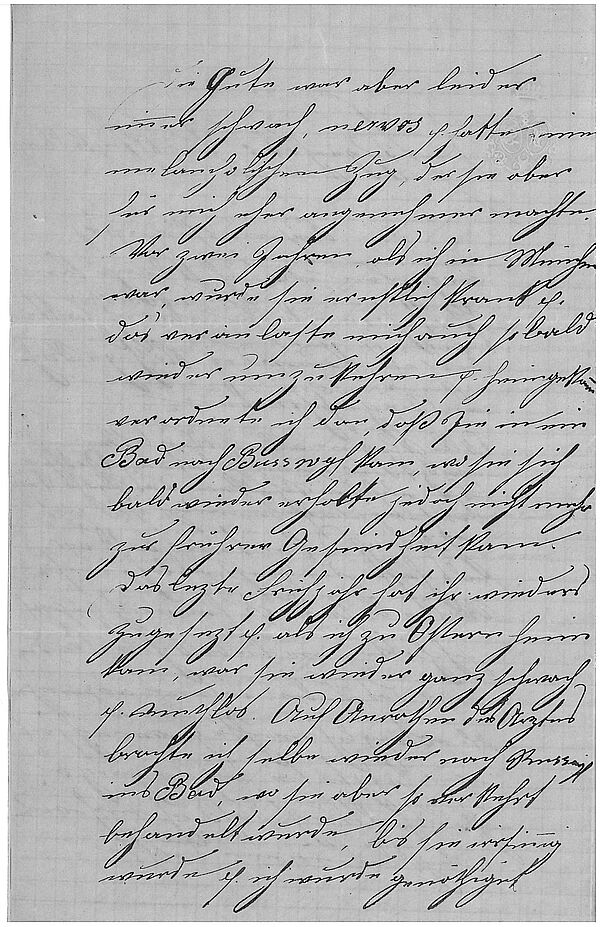 Die Gute war aber leider
immer schwach, nervos u. hatte eine
melancholischen Zug, der sie aber
für mich eher angenehmer machte.
Vor zwei Jahren, als ich in München
war, wurde sie ernstlich krank u.
das veranlaßte mich auch sobald
wieder umzukehren u. heimgekom̄
verordnete ich dan, daß sie in ein
Bad nach kam, wo sie sich
bald wieder erholte jedoch nicht mehr
zur früheren Gesundheit kam.
Das lezte Frühjahr hat ihr wieder
zugesezt u. als ich zu Ostern heim
kam, war sie wieder ganz schwach
u. muthlos. Auf Anrathen des Arztes
brachte ich selbe wieder nach
ins Bad, wo sie aber so verkehrt
behandelt wurde, bis sie irrsinnig
wurde u. ich wurde genöthiget